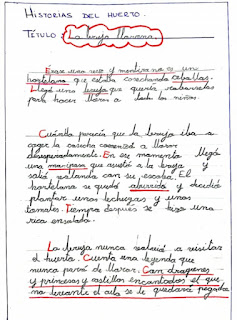 HISTORIAS DEL HUERTO.
TÍTULO: La bruja llorona.
Erase una vez y mentira no es un
hortelano que estaba cosechando cebollas.
Llegó una bruja que quería
para hacer llorar a todos los niños.
Cuando parecía que la bruja iba a
coger la cosecha comenzó a llorar
desesperadamente. En ese momento llegó
una mariposa que asustó a la bruja y
salió volando con su escoba. El
hortelano se quedó aburrido y decidió
plantar unas lechugas y unos
tomates. Tiempo después se hizo una
rica ensalada.
La bruja nunca volvió a visitar
el huerto. Cuenta una leyenda que
nunca paró de llorar. Con dragones
y princesas y castillos encantados el que
no levante el culo se le quedará pegado